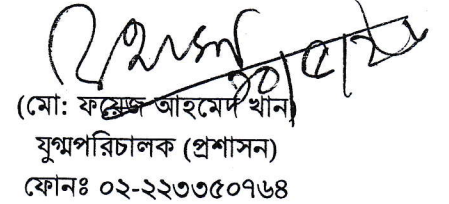 (মো: ফয়েজ আহমেদ খান)
যুগ্মপরিচালক (প্রশাসন)
ফোনঃ ০২-২২৩৩৫০৭৬৪